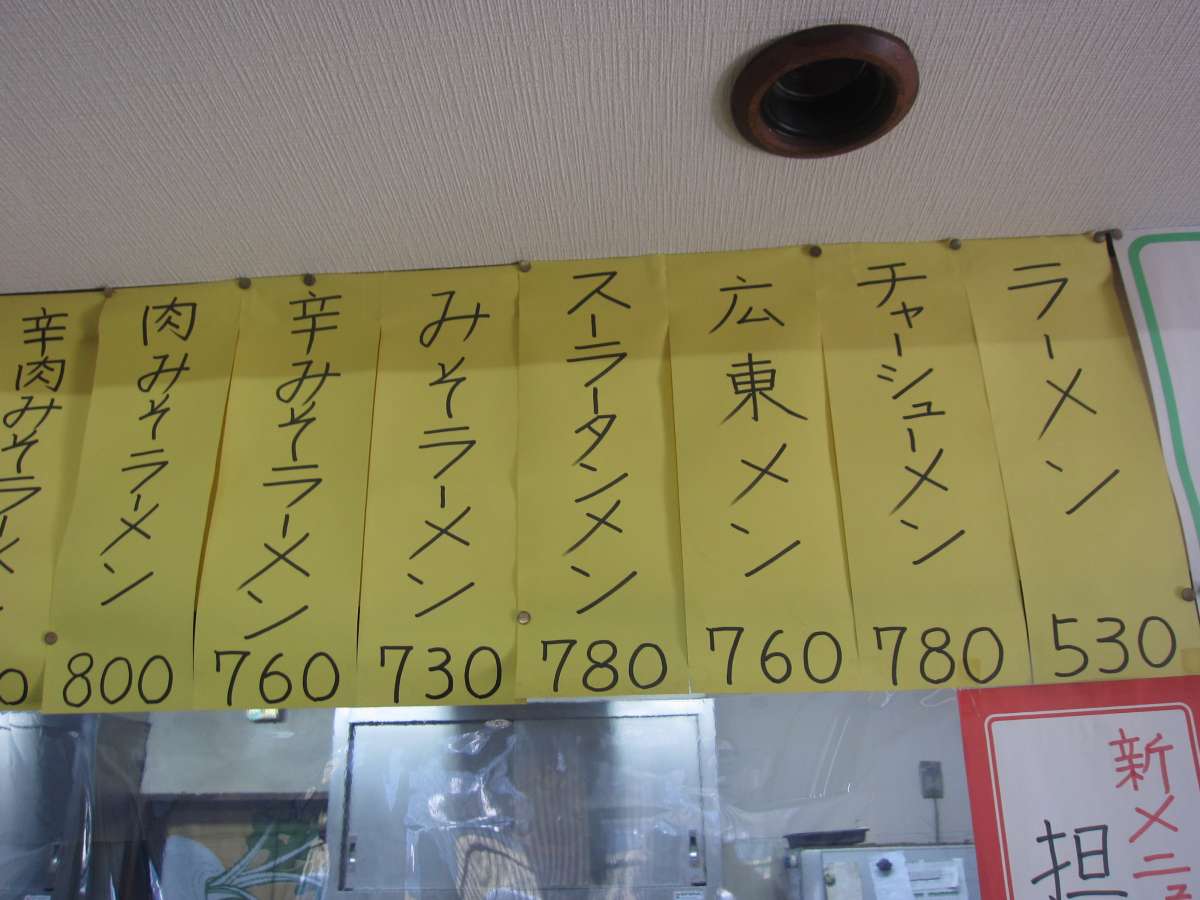 ラーメン
530
チャーシューメン
780
広東メン
760
スーラータンメン
780
みそラーメン
730
辛みそラーメン
760
肉みそラーメン
800
辛肉みそラーメ
0
新メニュ
担